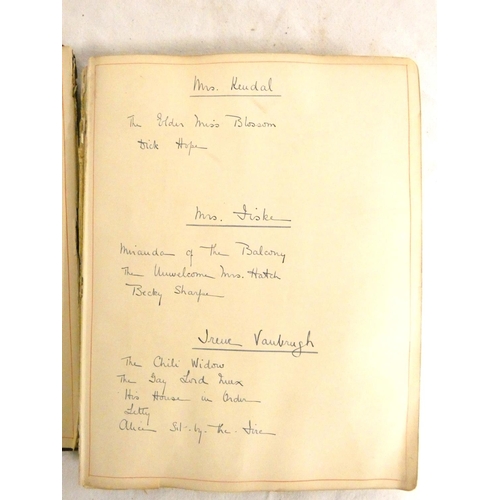 Mrs. Kendal
The Elder Miss Blossom
Dick Hope
Mrs. Fiske
Miranda of The Balcony
The Unwelcome Mrs. Hatch
Becky Sharpe
Irene Vanbrugh
The Chili Widow
The Gay Lord Quex
His House in Order
Letty
Alice Sit-by-The-Fire